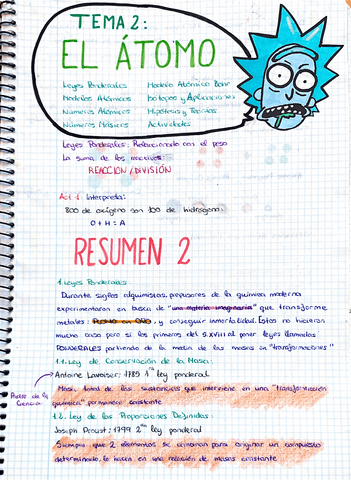 TEMA 2:
EL ÁTOMO
Leyes Ponderales Modelo Atómico Bohr
Modelos Atómicos Isótopos y Aplicaciones
Números Atómicos Hipótesis y Teorías
Números Másicos Actividades
Leyes Ponderales: Relacionado con el peso
La suma de los reactivos:
REACCIÓN / DIVISIÓN
Act 1. Interpreta:
800 de oxígeno son 100 de hidrógeno.
O + H = A
RESUMEN 2
1. Leyes Ponderales
Durante siglos alquimistas, precursores de la química moderna
experimentaron en busca de "una materia imaginaria" que transforme
metales: PLOMO en ORO, y conseguir inmortalidad. Estos no hicieron
mucho caso pero sí los primeros del S.XVIII al poner leyes llamadas
PONDERALES partiendo de la medida de las masas en "transformaciones"
1.1. Ley de Conservación de la Masa:
Antoine Lavoiser: 1789 1ª ley ponderal
Padre de la Ciencia
Masa total de las sustancias que interviene en una "transformación
química" permanece constante
1.2. Ley de las Proporciones Definidas:
Joseph Proust: 1799 2ª ley ponderal
Siempre que 2 elementos se combinan para originar un compuesto
determinado, lo hacen en una relación de masas constante